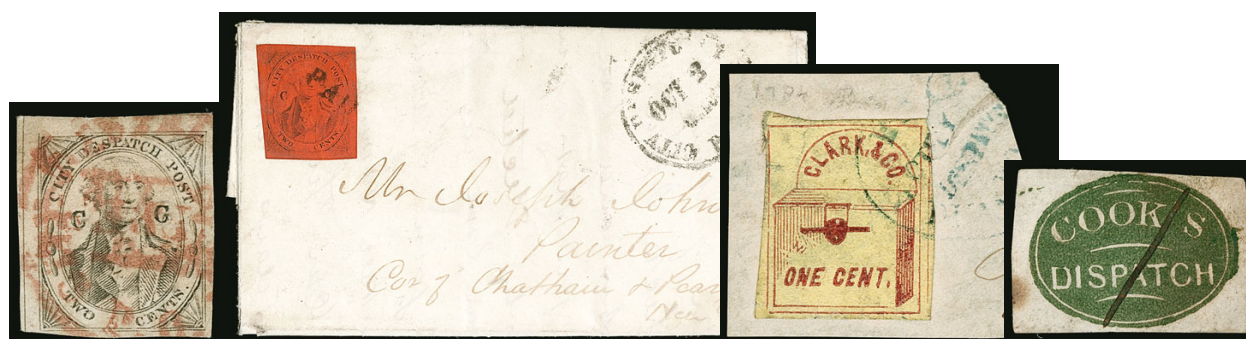 CITY DESPATCH POST
C C
TWO CENTS.
CITY DESPATCH POST
C
TWO CENTS.
CITY DESPATCH
OCT 3
Mr Joseph John
Painter
Cor of Chatham & Pear
New
CLARK & CO.
ONE CENT.
COOK'S
DISPATCH